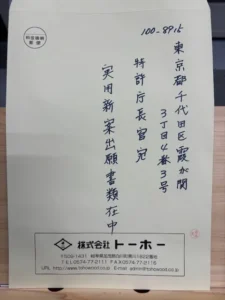 料金後納
郵便
100-8915
東京都千代田区霞が関
3丁目4番3号
特許庁長官宛
実用新案出願書類在中
株式会社トーホー